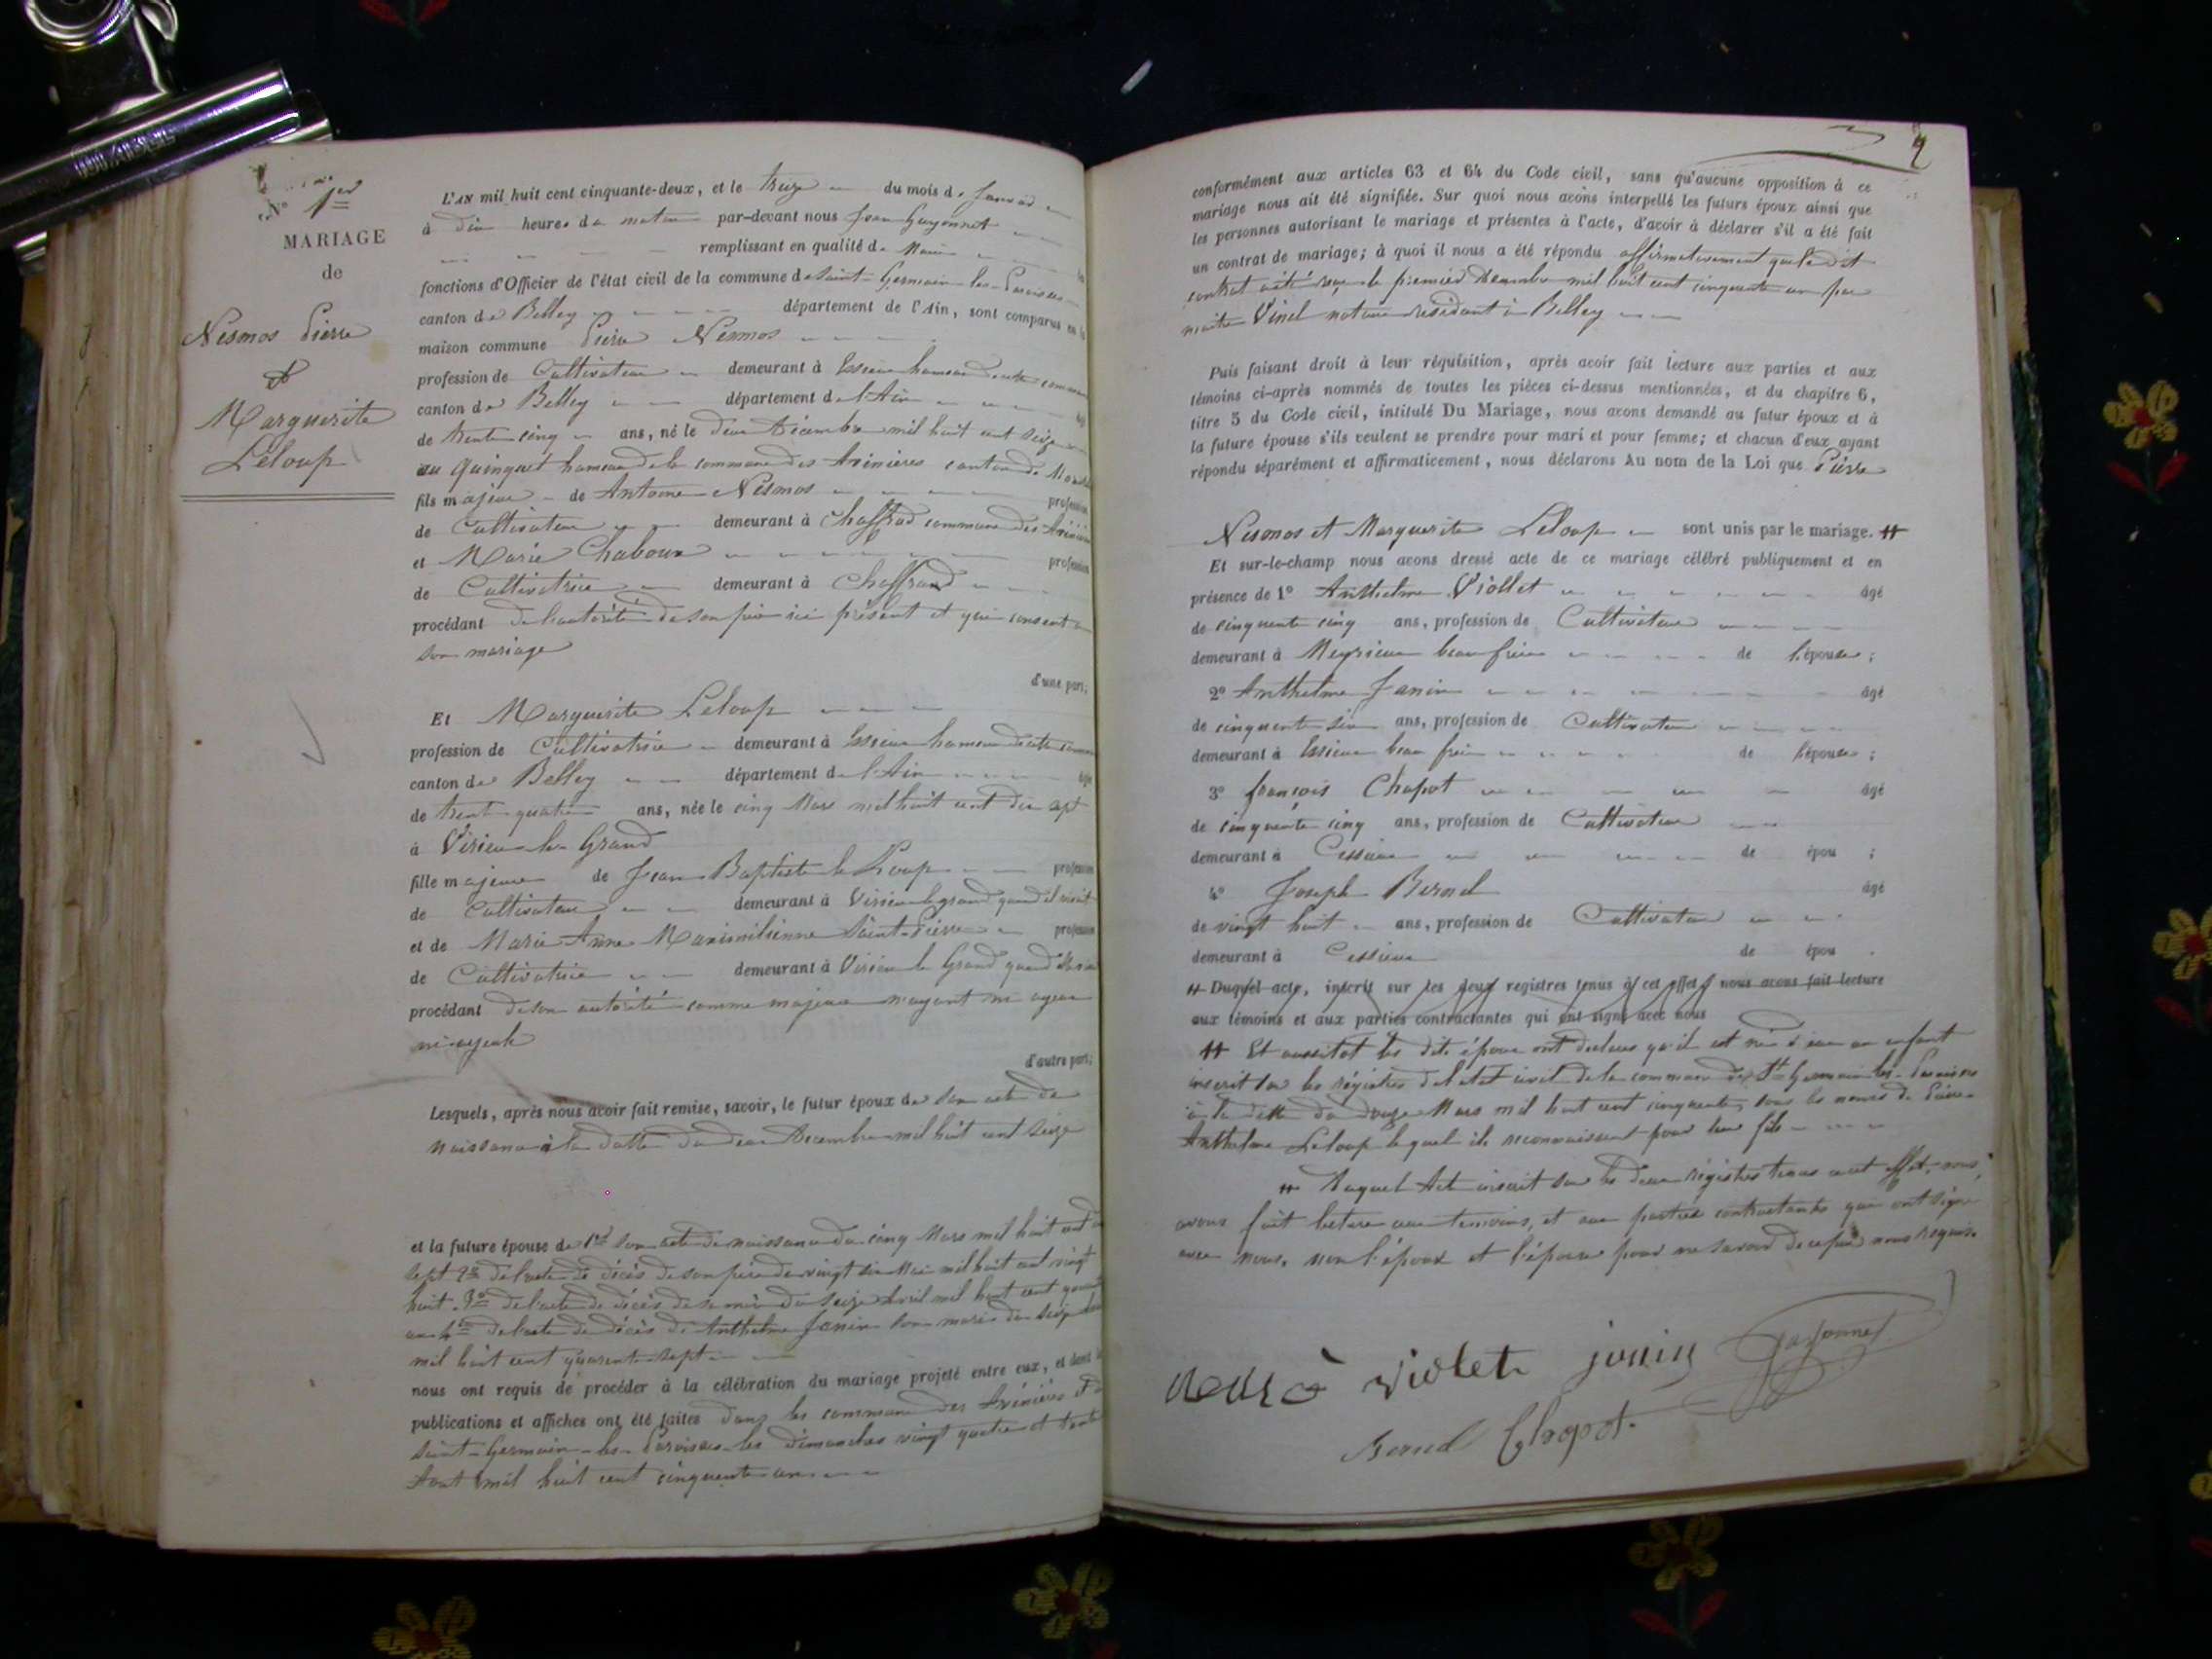 1er
MARIAGE
de
Nesmos Pierre
&
Marguerite
Leloup
L'AN mil huit cent cinquante-deux, et le treize du mois de Janvier
à dix heures du matin par-devant nous Jean Guyonnet
remplissant en qualité de Maire
fonctions d'Officier de l'état civil de la commune de Saint-Germain-les-Paroisses
canton de Belley département de l'Ain, sont comparus en la
maison commune Pierre Nesmos
profession de Cultivateur demeurant à Essieux hameau de cette commune
canton de Belley département de l'Ain
de trente cinq ans, né le deux Décembre mil huit cent seize
au Quinquet hameau de la commune des Avinieres canton de
fils majeur de Antoine Nesmos profession
de Cultivateur demeurant à Chaffrad commune des
et Marie Chaboux profession
de Cultivatrice demeurant à Chaffrand
procédant de l'autorité de son père ici présent et qui consent à
son mariage
d'une part;
Et Marguerite Leloup
profession de Cultivatrice demeurant à Essieux hameau de cette commune
canton de Belley département de l'Ain âgée
de trente quatre ans, née le cinq Mars mil huit cent dix sept
à Virieu-le-Grand
fille majeure de Jean Baptiste le Loup profession
de Cultivateur demeurant à Virieu le grand quand il vivait
et de Marie Anne Maximilienne Saint-Pierre profession
de Cultivatrice demeurant à Virieu le Grand quand
procédant de son autorité comme majeure n'ayant ni ayeux
ni ayeule
d'autre part;
Lesquels, après nous avoir fait remise, savoir, le futur époux de son acte de
naissance à la datte du deux Décembre mil huit cent seize
et la future épouse de 1er son acte de naissance du cinq Mars mil huit cent
sept 2e de l'acte de décès de son père du vingt six Mai mil huit cent vingt
huit. 3e de l'acte de décès de sa mère du seize Avril mil huit cent
un 4e de l'acte de décès de Anthelme Janin son mari du
mil huit cent quarante sept
nous ont requis de procéder à la célébration du mariage projeté entre eux, et dont les
publications et affiches ont été faites dans les commune des Avinières et de
Saint-Germain-les-Paroisses les dimanches vingt quatre et trente
Aout mil huit cent cinquante un
conformément aux articles 63 et 64 du Code civil, sans qu'aucune opposition à ce
mariage nous ait été signifiée. Sur quoi nous avons interpellé les futurs époux ainsi que
les personnes autorisant le mariage et présentes à l'acte, d'avoir à déclarer s'il a été fait
un contrat de mariage; à quoi il nous a été répondu affirmativement que le dit
contrat a été reçu le premier Décembre mil huit cent cinquante un par
maitre Vinel notaire résidant à Belley
Puis faisant droit à leur réquisition, après avoir fait lecture aux parties et aux
témoins ci-après nommés de toutes les pièces ci-dessus mentionnées, et du chapitre 6,
titre 5 du Code civil, intitulé Du Mariage, nous avons demandé au futur époux et à
la future épouse s'ils veulent se prendre pour mari et pour femme; et chacun d'eux ayant
répondu séparément et affirmativement, nous déclarons Au nom de la Loi que Pierre
Nesmos et Marguerite Leloup sont unis par le mariage. #
Et sur-le-champ nous avons dressé acte de ce mariage célébré publiquement et en
présence de 1º Anthelme Viollet âgé
de cinquante cinq ans, profession de Cultivateur
demeurant à Meyrieux beau frère de l'épouse;
2º Anthelme Janin âgé
de cinquante six ans, profession de Cultivateur
demeurant à Essieux beau frère de l'épouse;
3º françois Chapot âgé
de cinquante cinq ans, profession de Cultivateur
demeurant à Cessieux de épou ;
4º Joseph Berond âgé
de vingt huit ans, profession de Cultivateur
demeurant à Cessieux de épou .
# Duquel acte, inscrit sur les deux registres tenus à cet effet, nous avons fait lecture
aux témoins et aux parties contractantes qui ont signé avec nous
# Et aussitôt les dits époux ont déclaré qu'il est né d'eux un enfant
inscrit sur les régistres de l'état civil de la commune de St Germain les Paroisses
à la datte du douze Mars mil huit cent cinquante, sous les noms de Pierre
Anthelme Leloup lequel ils reconnaissent pour leur fils
# Duquel Acte inscrit sur les deux régistres tenus à cet effet, nous
avons fait lecture aux témoins, et aux parties contractantes qui ont signé
avec nous, non l'époux et l'épouse pour ne savoir de ce fait nous requis.
violet janin Guyonnet
Berond Chapot